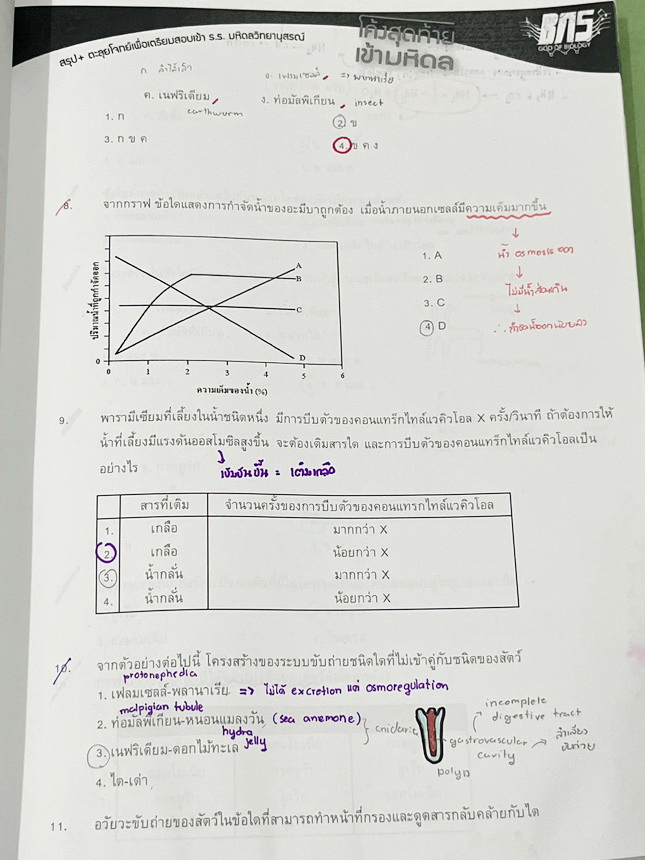 สรุป+ ตะลุยโจทย์เพื่อเตรียมสอบเข้า ร.ร. มหิดลวิทยานุสรณ์
โค้งสุดท้าย
เข้ามหิดล
BNS
GOD OF BIOLOGY
ก ลำไส้เล็ก
ข. เฟลมเซลล์ => พลานาเรีย
ค. เนฟริเดียม
earthworm
ง. ท่อมัลพิเกียน insect
1. ก
2 ข
3. ก ข ค
4. ข ค ง
8. จากกราฟ ข้อใดแสดงการกำจัดน้ำของอะมีบาถูกต้อง เมื่อน้ำภายนอกเซลล์มีความเค็มมากขึ้น
ปริมาณน้ำที่ถูกกำจัดออก
A
B
C
D
0
0 1 2 3 4 5 6
ความเค็มของน้ำ (%)
1. A
2. B
3. C
4 D
น้ำ osmosis ออก
ไม่มีน้ำส่วนเกิน
∴ กำจัดน้ำออกน้อยลง
9. พารามีเซียมที่เลี้ยงในน้ำชนิดหนึ่ง มีการบีบตัวของคอนแทร็กไทล์แวคิวโอล X ครั้ง/วินาที ถ้าต้องการให้
น้ำที่เลี้ยงมีแรงดันออสโมซิสสูงขึ้น จะต้องเติมสารใด และการบีบตัวของคอนแทร็กไทล์แวคิวโอลเป็น
อย่างไร
เข้มข้นขึ้น = เติมเกลือ
สารที่เติม จำนวนครั้งของการบีบตัวของคอนแทรกไทล์แวคิวโอล
1. เกลือ มากกว่า X
2 เกลือ น้อยกว่า X
3. น้ำกลั่น มากกว่า X
4. น้ำกลั่น น้อยกว่า X
10. จากตัวอย่างต่อไปนี้ โครงสร้างของระบบขับถ่ายชนิดใดที่ไม่เข้าคู่กับชนิดของสัตว์
protonephedia
1. เฟลมเซลล์-พลานาเรีย => ไม่ได้ excretion แต่ osmoregulation
malpigian tubule
2. ท่อมัลพิเกียน-หนอนแมลงวัน (sea anemone)
hydra
3. เนฟริเดียม-ดอกไม้ทะเล jelly
cnidaria
4. ไต-เต่า
incomplete
digestive tract
gastrovascular
cavity
ลำเลียง
ขับถ่าย
polyp
11. อวัยวะขับถ่ายของสัตว์ในข้อใดที่สามารถทำหน้าที่กรองและดูดสารกลับคล้ายกับไต